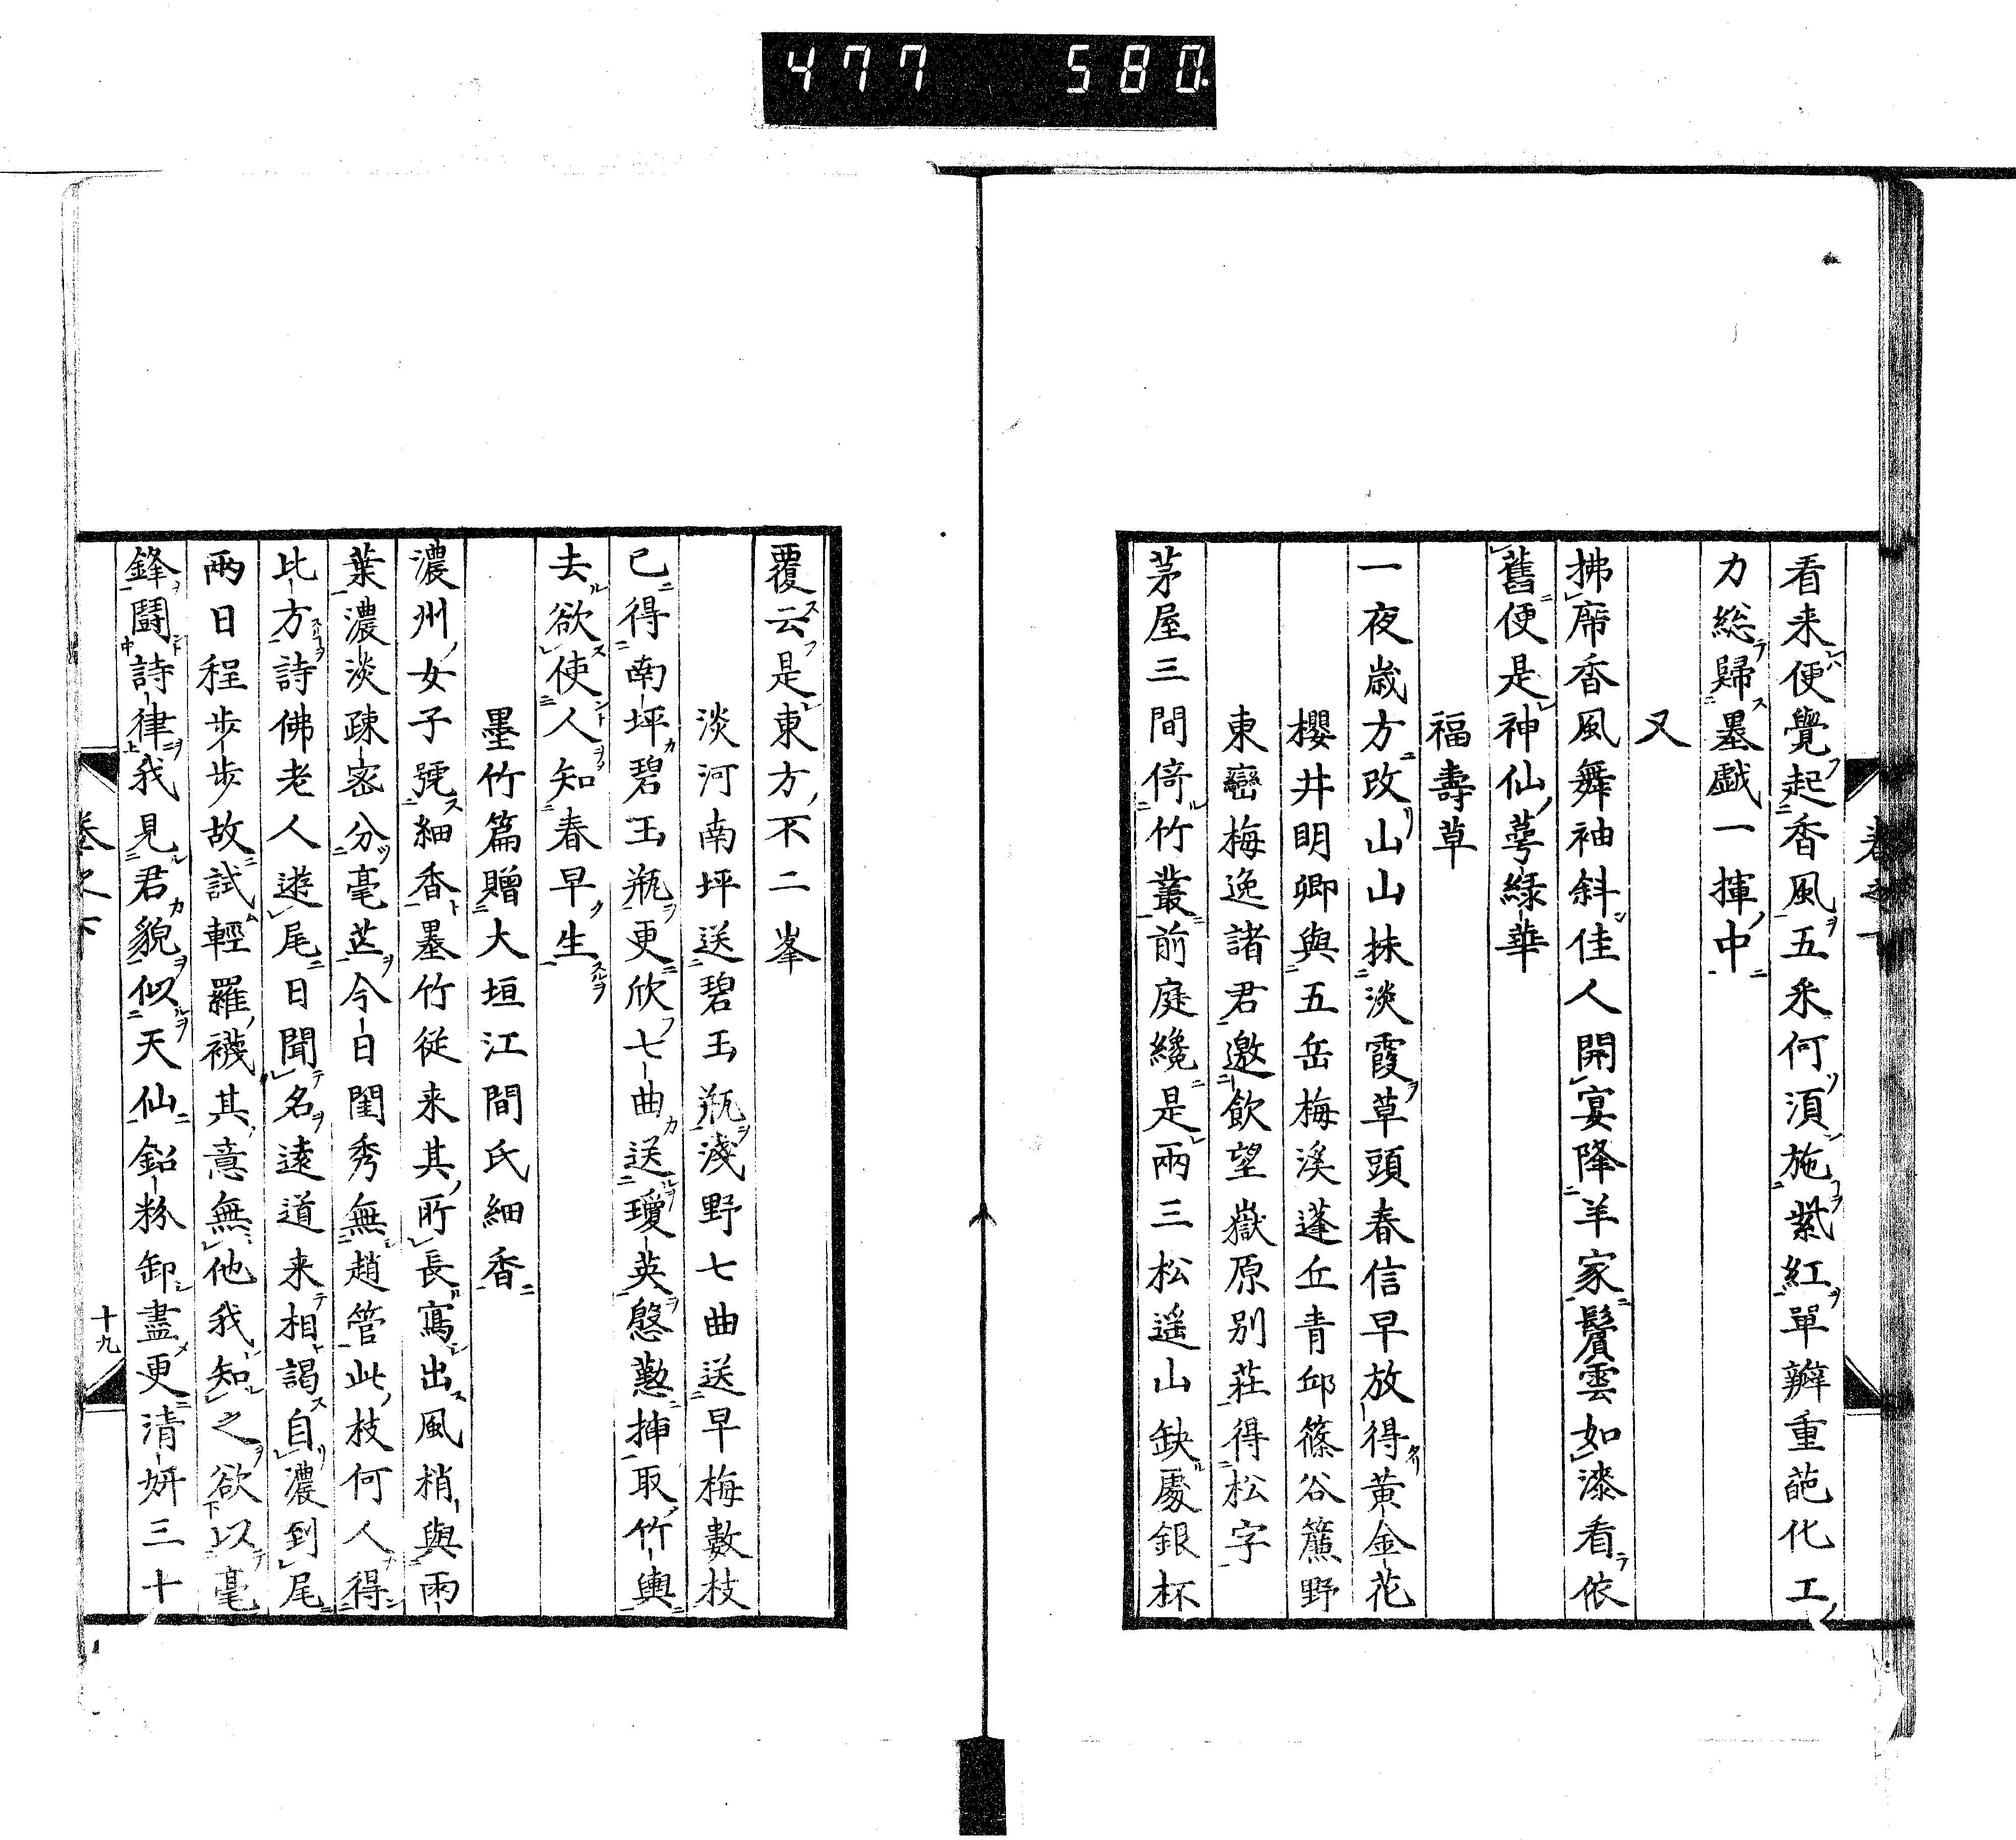 477 580
看来便覺起香風五釆何須施紫紅單辧重葩化工
力総歸墨戯一揮中
又
拂席香風舞袖斜佳人開宴降羊家鬢雲如漆看依
舊便是神仙萼緑華
福壽草
一夜歳方改山山抹淡霞草頭春信早放得黄金花
櫻井明卿與五岳梅溪蓬丘青邱篠谷簾野
東巒梅逸諸君邀飲望嶽原別莊得松字
茅屋三間倚竹叢前庭纔是兩三松遥山缺處銀杯
覆云是東方不二峯
淡河南坪送碧玉瓶淺野七曲送早梅數枝
已得南坪碧玉瓶更欣七曲送瓊英慇懃挿取竹輿
去欲使人知春早生
墨竹篇贈大垣江間氏細香
濃州女子號細香墨竹從来其所長寫出風梢與雨
葉濃淡疎密分毫芒今日閨秀無趙管此枝何人得
比方詩佛老人遊尾日聞名遠道来相謁自濃到尾
兩日程歩歩故試輕羅襪其意無他我知之欲以毫
鋒鬪詩律我見君貌似天仙鉛粉卸盡更清妍三十
卷之下
十九